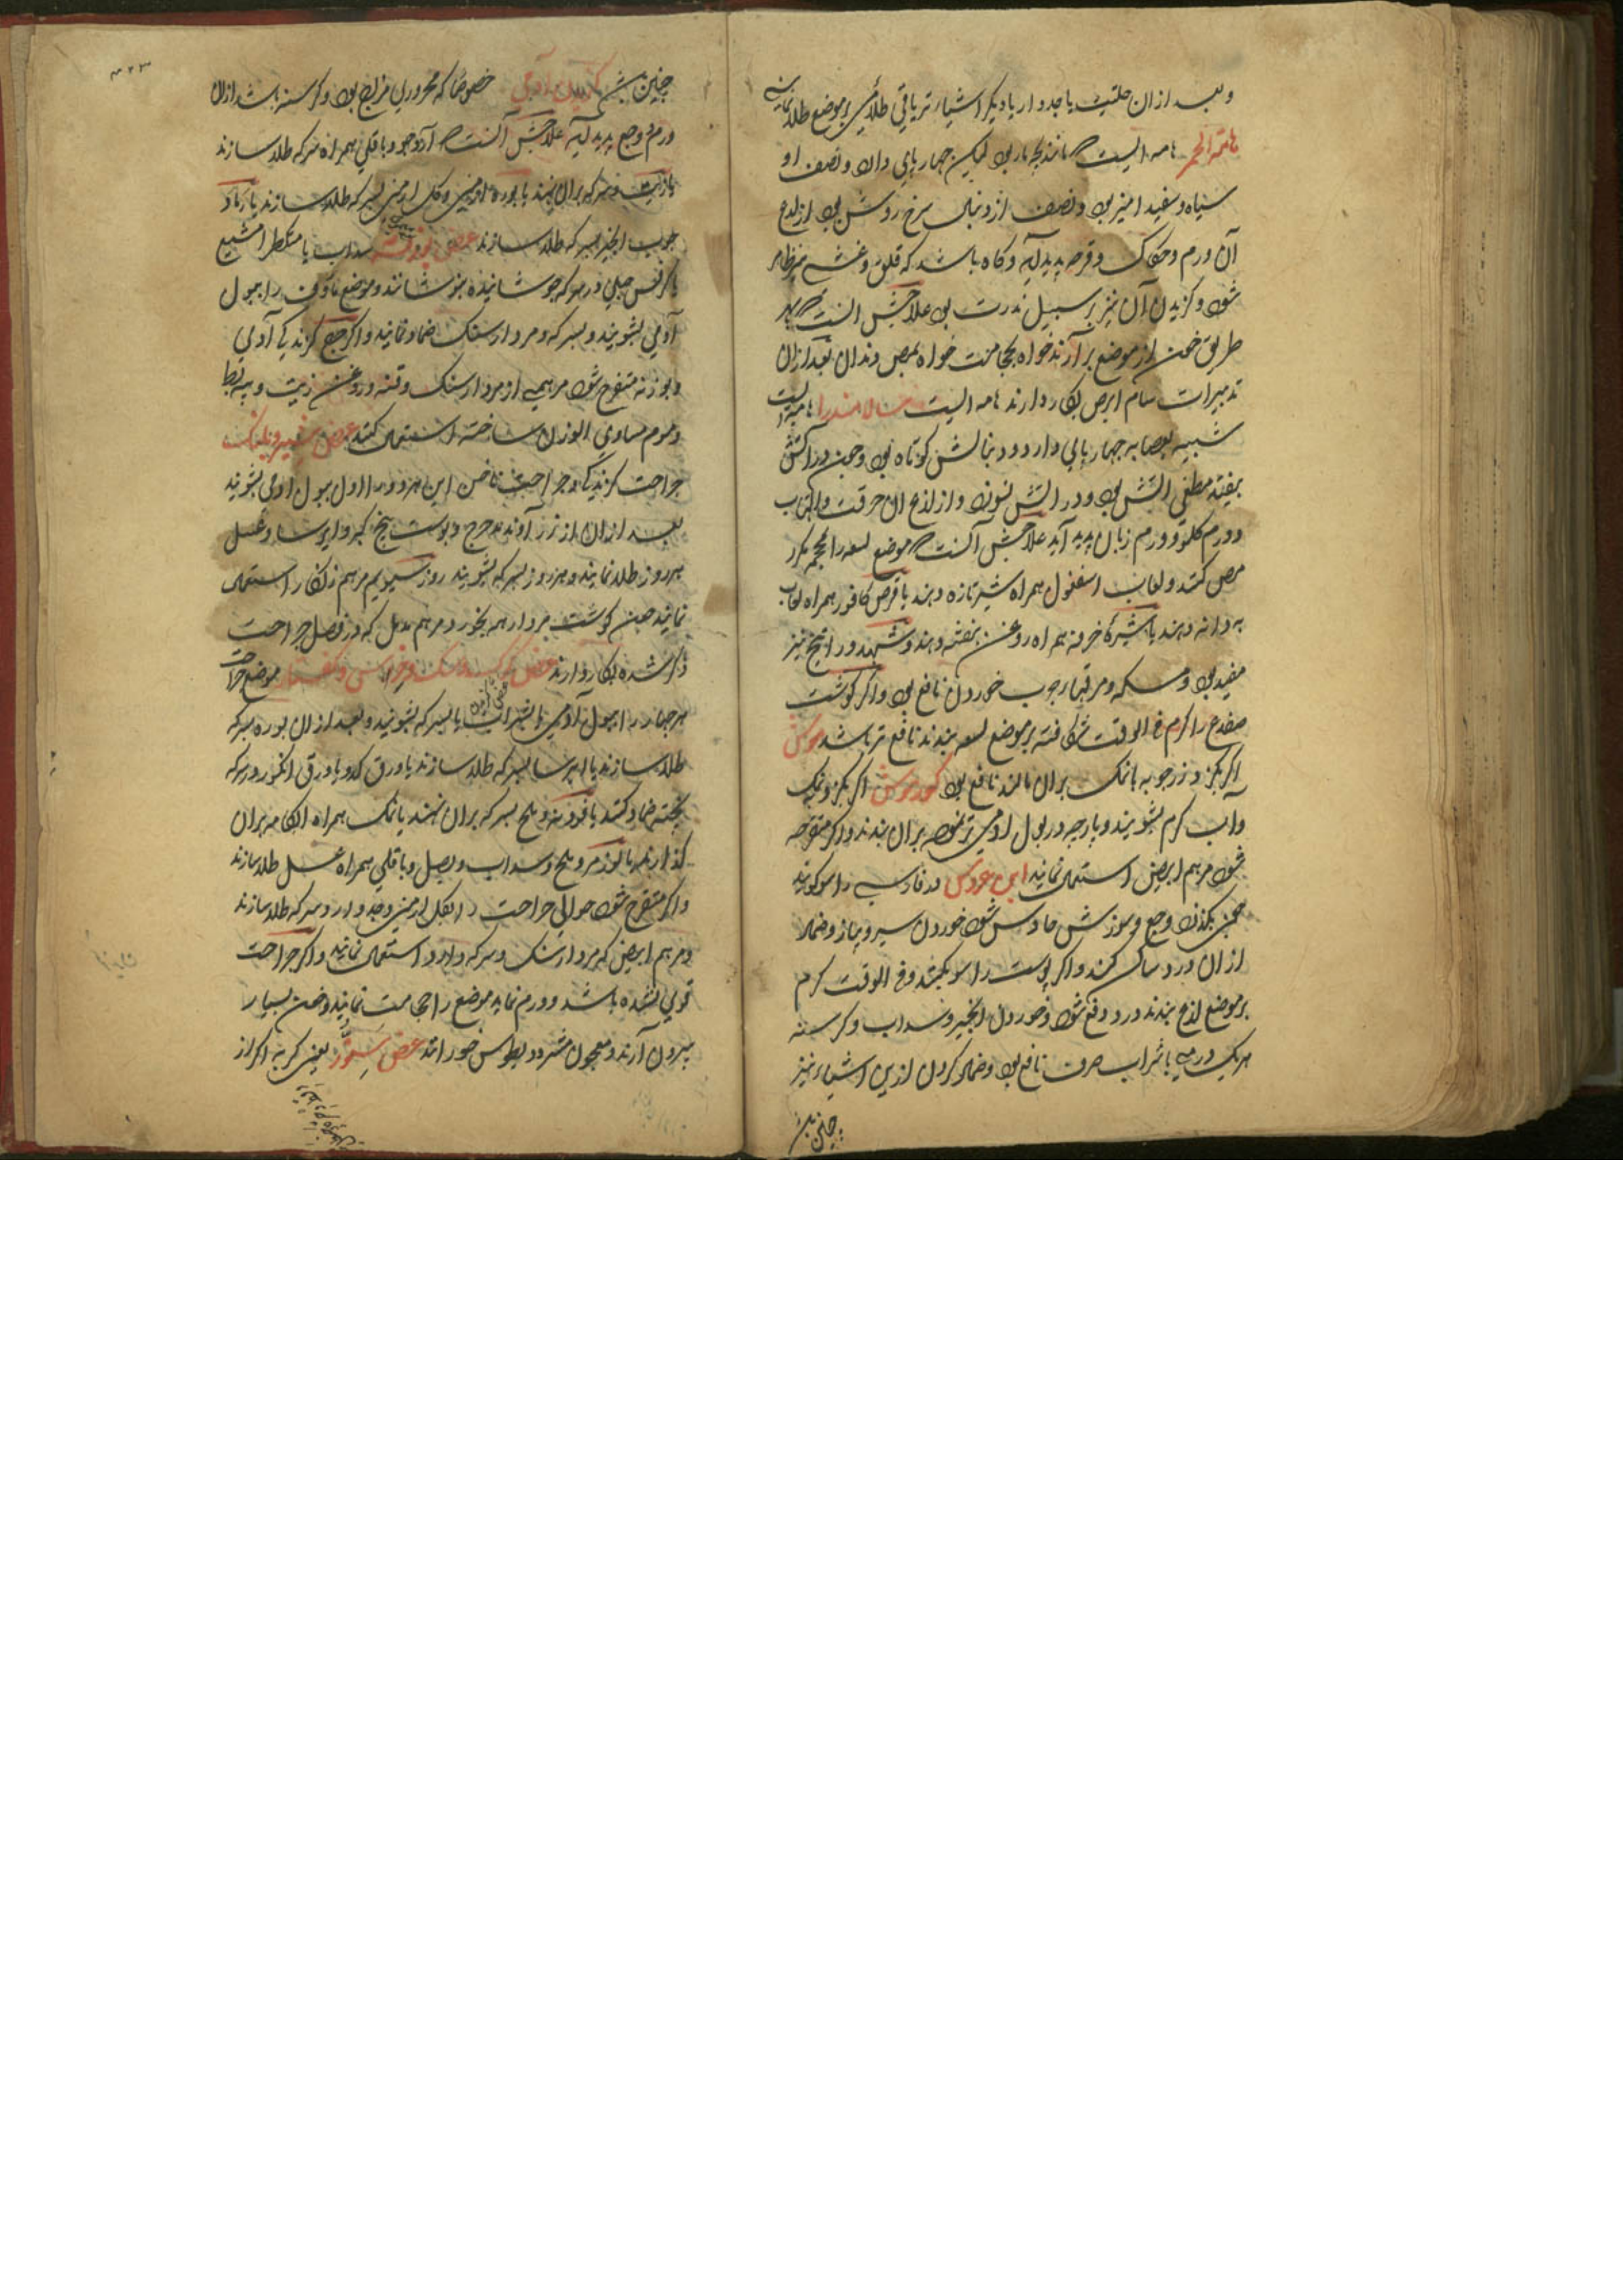 وبعد ازان حلتیت یا جدوار یا دیکر اشیاء تریاقی طلائی بر موضع طلا نمایند
هامه ایست که مانند بچه مار بود لیکن چهار پای دارد و نصف او
سیاه و سفید امیز بود و نصف از دنبال سرخ روشن بود از لدغ
آن ورم و حکاک و قرحه پدید آید و کاه باشد که قلق و غشی نیز ظاهر
شود و کزیدن آن نیز بر سبیل ندرت بود علاجش آنست که بهر
طریق خون از موضع برآرند خواه بحجامت خواه بمص دندان بعد ازان
تدبیرات سام ابرص بکار دارند سالامندرا هامه ایست
شبیه بعصایه چهار پای دارد و دنبالش کوتاه بود و چون در آتش
بیفتد مطفی آتش بود و در آتش نسوزد و از لدغ آن حرقت و التهاب
و ورم زبان پدید آید علاجش آنست که موضع لسعه را محجمه کرد
مص کنند و لعاب اسفغول همراه شیر تازه دهند یا قرص کافور همراه لعاب
به دانه دهند یا شیره خرفه همراه روغن بنفشه دهند و شهد و راتنج نیز
مفید بود و مسکه و مرقهاء چرب خوردن نافع بود و اکر کوشت
ضفدع را کرم فی الوقت شکافته بر موضع لسعه بندند نافع تر باشد موش
اکر بکزد زرچوبه با نمک بران مالند نافع بود کور موش اکر بکزد بنمک
و آب کرم بشویند و پارچه در بول آدمی تر نموده بران بندند و اکر متقرحه
شود مرهم ابیض استعمال نمایند ابن عروس در فارسی راسو کویند
چون بکزد وجع و سوزش حادث شود خوردن سیر و پیاز و ضماد
ازان درد ساکن کند و اکر پوست راسو بکشند و فی الوقت کرم
بر موضع لدغ بندند درد دفع شود و خوردن انجیر و سداب و کرسنه
هر یک درمی با شراب صرف نافع بود و ضماد کردن ازین اشیاء نیز
چنین
چنین خصوصا که محروری مزاج بود و کرسنه باشد ازان
ورم و وجع پدید آید علاجش آنست که آرد جو و باقلی همراه سرکه طلا سازند
یا زیت و سرکه بران نهند یا بوره ارمنی و کل ارمنی بسرکه طلا سازند یا رماد
چوب انجیر بسرکه طلا سازند عض بوزنه سداب یا مشکطرامشیع
یا کرفس جبلی در سرکه جوشانیده بنوشانند و موضع ماوف را ببول
آدمی بشویند و بسرکه و مردارسنک ضماد نمایند و اکر جمیع کزندکی آدمی
و بوزنه متقرح شود مرهمی از مردارسنک و قنه و روغن زیت و پیه بط
و موم مساوی الوزن ساخته استعمال کنند عض شیر و پلنک
جراحت کزندکی و جراحت ناخن این هر دو را اول ببول آدمی بشویند
بعد ازان از زرآوند مدحرج و پوست بیخ کبر و ایرسا و عسل
هر روز طلا نمایند و هر روز بسرکه بشویند روز سیوم مرهم زنکار استعمال
نمایند چون کوشت مردار همه بخورد مرهم مدمل که در فصل جراحت
ذکر شده بکار دارند عض کرک و سک و خرس و کفتار موضع جراحت
هر چهار را ببول آدمی یا شراب یا بسرکه بشویند و بعد ازان بوره بسرکه
طلا سازند یا ایرسا بسرکه طلا سازند یا ورق کدو یا ورق انکور در سرکه
پخته ضماد کنند یا قردمانه و ملح بسرکه بران نهند یا نمک همراه انکامه بران
کذارند یا لوز مر و ملح و سداب و بصل و باقلی همراه عسل طلا سازند
و اکر متقرح شود حوالی جراحت را بکل ارمنی و جدوار و سرکه طلا سازند
و مرهم ابیض که مردارسنک و سرکه دارد استعمال نمایند و اکر جراحت
قوی نشده باشد و ورم نماید موضع را حجامت نمایند و خون بسیار
بیرون آرند و معجون مثرودیطوس خورانند عض سنور یعنی کربه اکر از